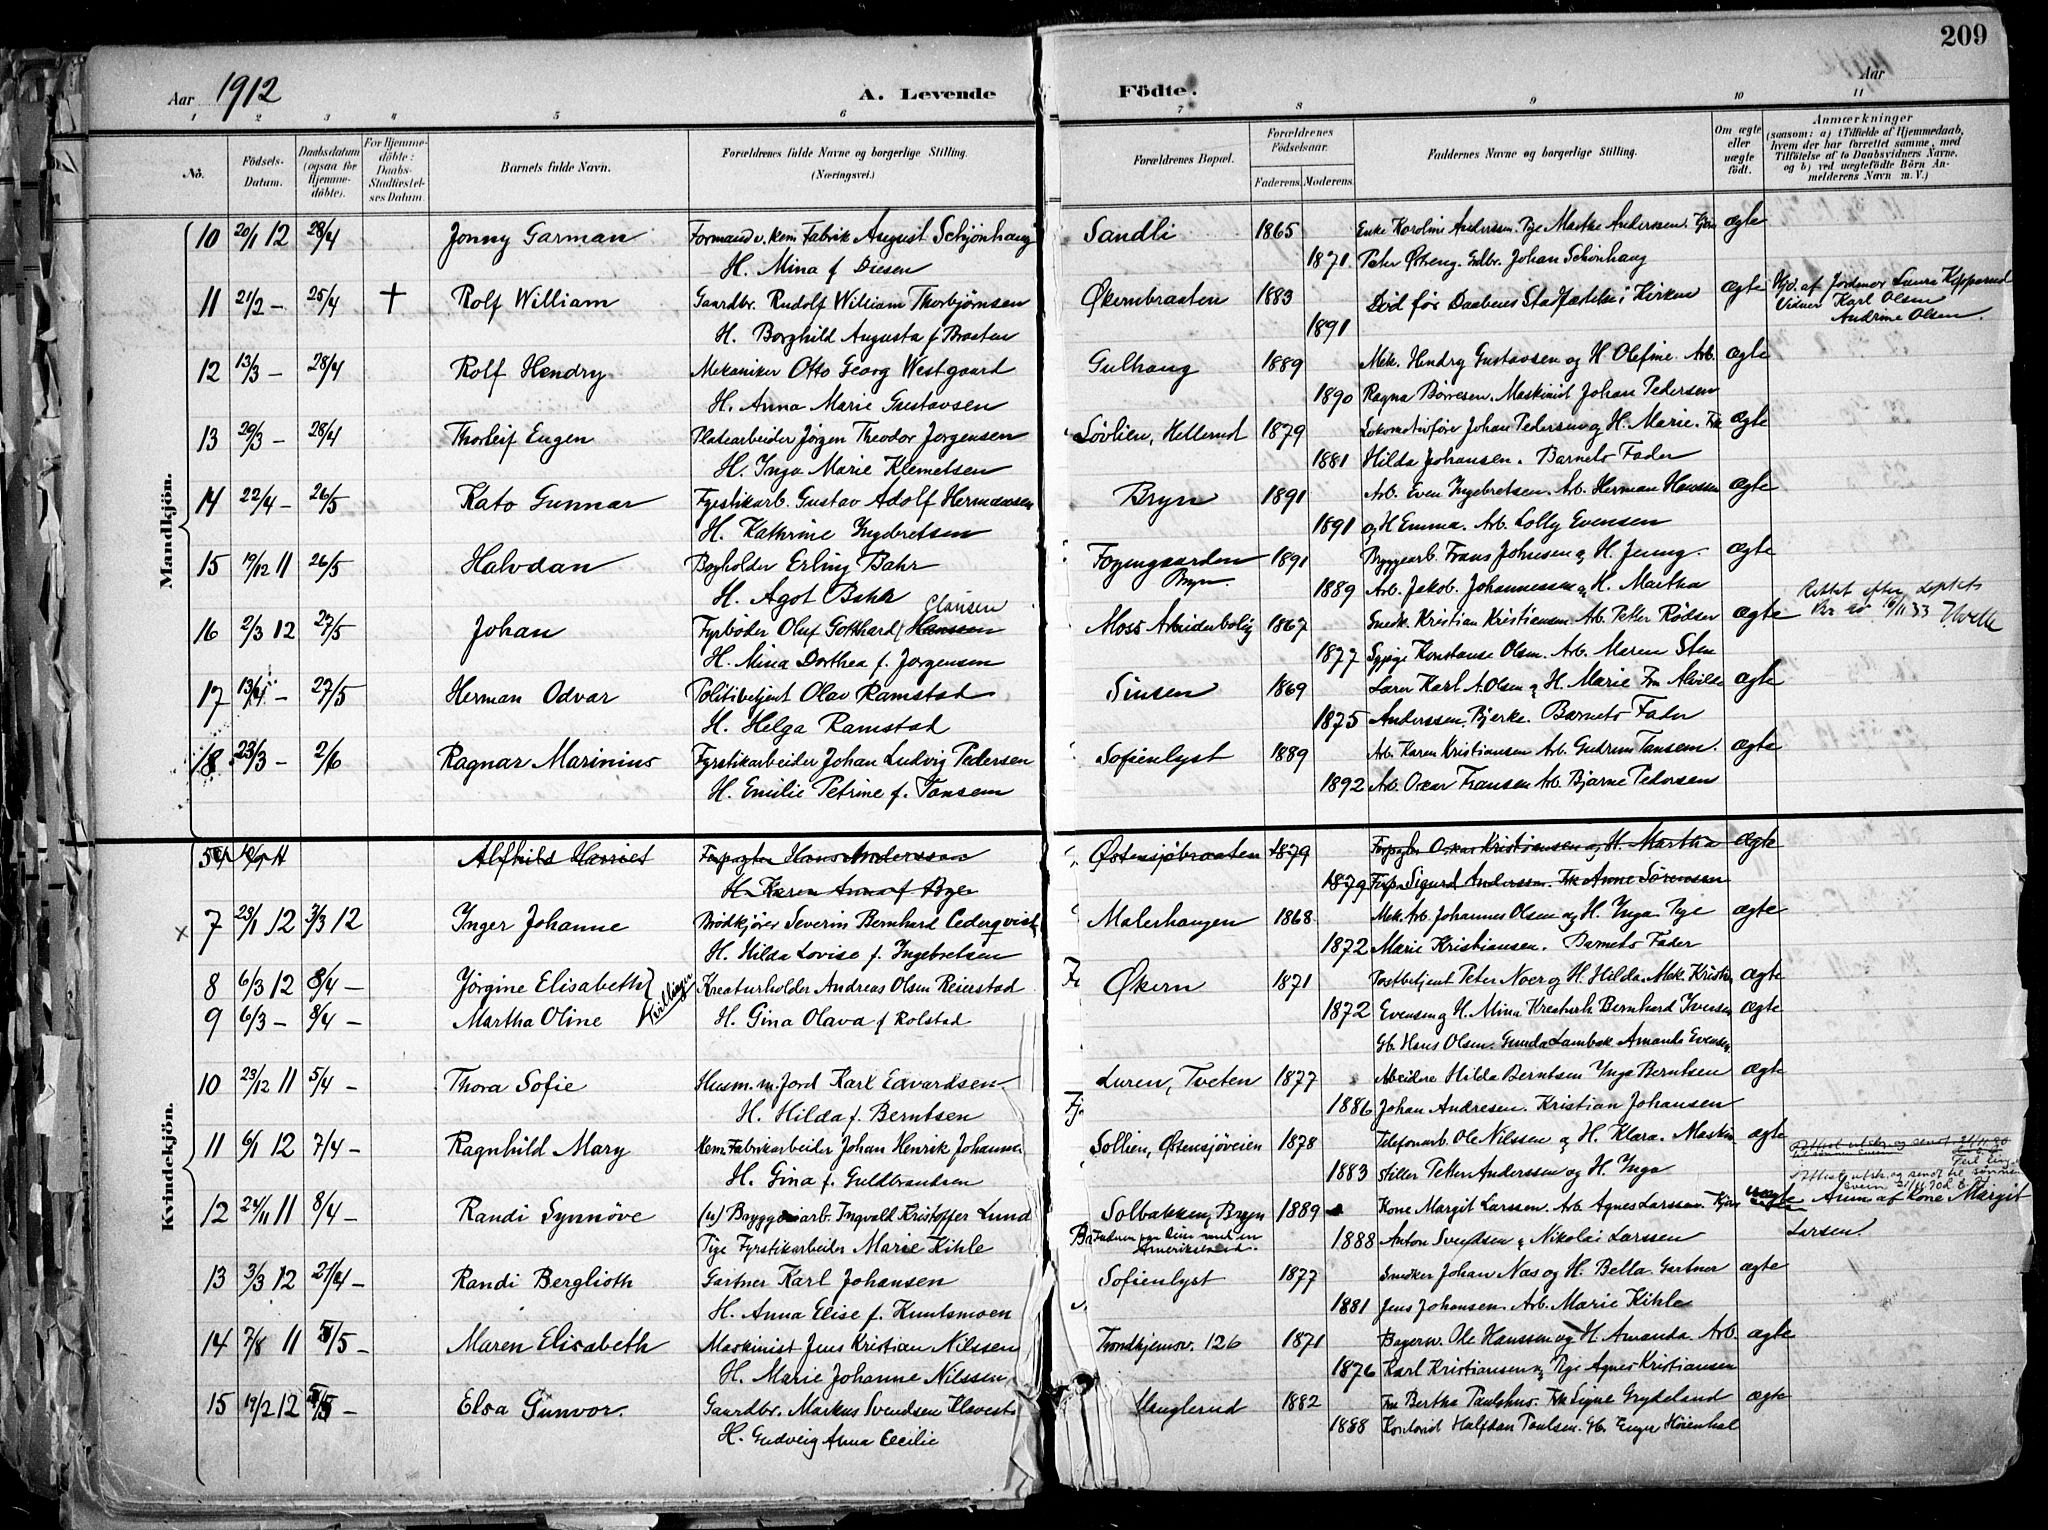 209
Aar 1912
A. Levende
Födte.
Aar
1 2 3 4 5 6 7 8 9 10 11
No.
Födsels-Datum.
Daabsdatum (ogsaa for Hjemme-döbte).
For Hjemme-döbte: Daabs-Stadfæstel-ses Datum.
Barnets fulde Navn.
Forældrenes fulde Navne og borgerlige Stilling.
(Næringsvei.)
Forældrenes Bopæl.
Forældrenes Födselsaar.
Faderens. Moderens.
Faddernes Navne og borgerlige Stilling.
Om ægte eller uægte födt.
Anmærkninger
(saasom: a) i Tilfælde af Hjemmedaab, hvem der har forrettet samme, med Tilföielse af to Daabsvidners Navne, og b) ved uægtefödte Börn An-melderens Navn m. V.)
Mandkjön.
10 20/1 12 28/4 Jonny Garman Formand v. kem. Fabrik August Schjönhaug Sandli 1865 Enke Karoline Anderssen. Pige Marthe Anderssen. ægte
H. Mina f. Diesen 1871 Peter Østreng. Gdbr. Johan Schönhaug
11 21/2 - 25/4 † Rolf William Gaardbr. Rudolf William Thorbjørnsen Økernbraaten 1883 Død før Daabens Stadfæstelse i Kirken ægte Hjd. af Jordmor Laura Kopperud
H. Borghild Augusta f. Braaten 1891 Vidner Karl Olsen
Andrine Olsen.
12 13/3 - 28/4 Rolf Hendry Mekaniker Otto Georg Westgaard Gulhaug 1889 Mek. Hendry Gustavsen og H. Olefine. Arb. ægte
H. Anna Marie Gustavsen 1890 Ragna Børresen. Maskinist Johan Pedersen
13 29/3 - 28/4 Thorleif Eugen Platearbeider Jørgen Theodor Jørgensen Løvlien, Hellerud 1879 Lokomotivfører Johan Pedersen og H. Marie. Frk ægte
H. Inga Marie Klemetsen 1881 Hilda Johansen. Barnets Fader
14 22/4 - 26/5 Kato Gunnar Fyrstikarb. Gustav Adolf Hermansen Bryn 1891 Arb. Even Ingebretsen. Arb. Herman Hanssen ægte
H. Kathrine Ingebretsen 1891 og H. Emma. Arb. Lolly Evensen
15 19/12 11 26/5 Halvdan Bogholder Erling Bahr Fogengaarden 1891 Byggearb. Frans Johnsen og H. Jenny. ægte
H. Agot Bahr Bryn 1889 Arb. Jakob Johannessen og H. Martha
16 2/3 12 27/5 Johan Fyrbøder Oluf Gotthard Hanssen Clausen Moss Arbeiderbolig 1867 Smedk. Kristian Kristiansen. Arb. Petter Rødser ægte Rettet efter deptets
H. Mina Dorthea f. Jørgensen 1877 Sypige Konstanse Olsen. Arb. Maren Sten
17 13/4 - 27/5 Herman Odvar Politibetjent Olav Ramstad Sinsen 1869 Lærer Karl A. Olsen og H. Marie Frk Alvilde ægte
H. Helga Ramstad 1875 Anderssen, Bjerke. Barnets Fader
18 23/3 - 2/6 Ragnar Marinius Fyrstikarbeider Johan Ludvig Pedersen Sofienlyst 1889 Arb. Karen Kristiansen Arb. Gudrun Tansem. ægte
H. Emilie Petrine f. Tansem 1892 Arb. Oscar Fransen Arb. Bjarne Pedersen
Kvindekjön.
Alfhild Harriet Forpagter Hans Anderssen Østensjøbraaten 1879 Forpagter Oskar Kristiansen og H. Martha ægte
H. Karen Anna f. Bye 1879 Forp. Sigurd Anderssen. Frk Anne Sørensen
x 7 23/1 12 3/3 12 Inger Johanne Brødkjører Severin Bernhard Cederqvist Malerhaugen 1868 Mek. Arb. Johannes Olsen og H. Inga. Pige ægte
H. Hilda Lovise f. Ingebretsen 1872 Marie Kristiansen. Barnets Fader
8 6/3 12 8/4 - Jörgine Elisabeth Tvillinger Kreaturholder Andreas Olsen Reierstad Økern 1871 Postbetjent Peter Noer og H. Hilda Mek. Kristian ægte
9 6/3 - 8/4 - Martha Oline H. Gina Olava f. Rolstad 1872 Evensen og H. Mina Kreaturh Bernhard Iversen ægte
Gb. Hans Olsen. Gunda Lambek Amanda Evensen
10 23/12 11 5/4 - Thora Sofie Husm. m. Jord Karl Edvardsen Luren, Tveten 1877 Arbeidere Hilda Berntsen Inga Berntsen ægte
H. Hilda f. Berntsen 1886 Johan Andresen. Kristian Johansen
11 6/1 12 7/4 - Ragnhild Mary Kem. Fabrikarbeider Johan Henrik Johannes Sollien, Østensjøveien 1878 Telefonarb. Ole Nilssen og H. Klara. Maskin ægte
H. Gina f. Guldbrandsen 1883 Stiller Petter Anderssen og H. Inga
12 24/11 11 8/4 - Randi Synnöve (u) Bryggeriarb. Ingvald Kristoffer Lund Solbakken, Bryn 1889 Kone Margit Larssen. Arb. Agnes Larssen. uægte Anm. af Kone Margit
Pige Fyrstikarbeider Marie Kihle 1888 Anton Svendsen og Nikolai Larssen Larsen.
13 3/3 12 21/4 - Randi Berglioth Gartner Karl Johansen Sofienlyst 1877 Snedker Johan Næs og H. Bella. Gartner ægte
H. Anna Elise f. Knutsmoen 1881 Jens Johansen. Arb. Marie Kihle
14 7/8 11 5/5 - Maren Elisabeth Maskinist Jens Kristian Nilssen Trondhjemsv. 126 1871 Bagerm. Ole Hanssen og H. Amanda. Arb. ægte
H. Marie Johanne Nilssen 1876 Karl Kristiansen og Pige Agnes Kristiansen
15 19/2 12 5/5 - Elsa Gunvor. Gaardbr. Markus Svendsen Klavest Manglerud 1882 Fru Bertha Paulshus. Frk Signe Grydeland ægte
H. Gudveig Anna Cecilie 1888 Kontorist Halfdan Paulsen. Gb. Enger Hosenhal